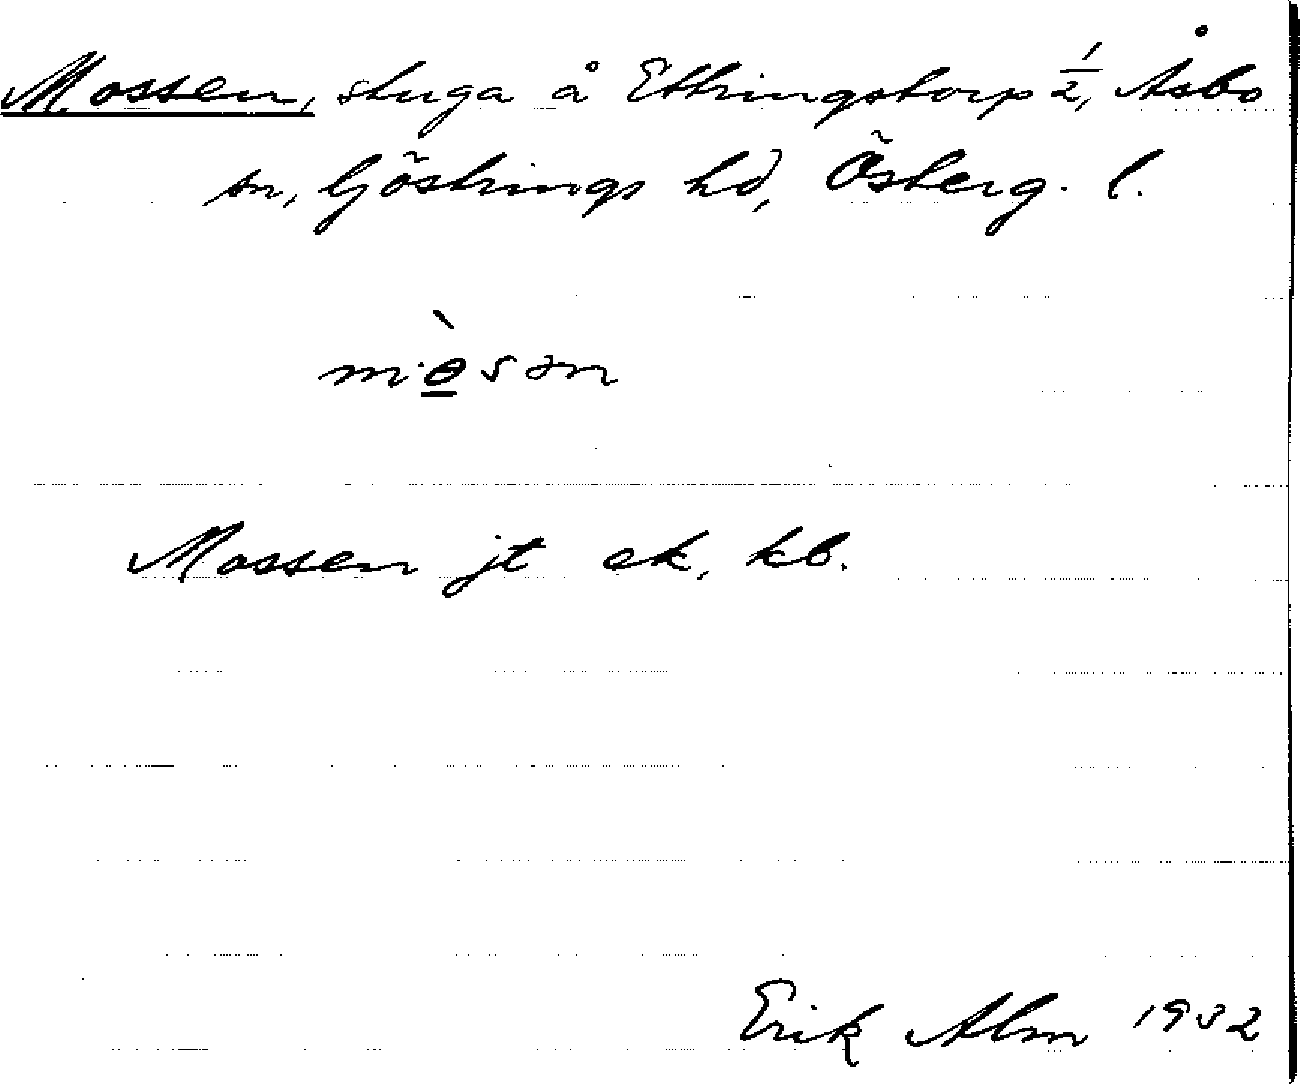 Mossen, stuga å Ettringstorp 1/2, Åsbo
sn, Göstrings hd, Österg. l.
mò̱sən
Mossen jt ek, kb.
Erik Alm 1932